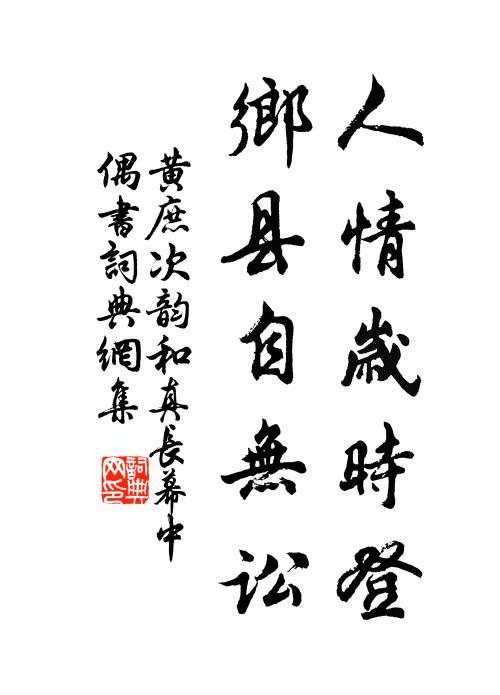 人情歲時登
鄉县自無訟
黃庶次韵和真長幕中
偶書詞典網集
詞典网印